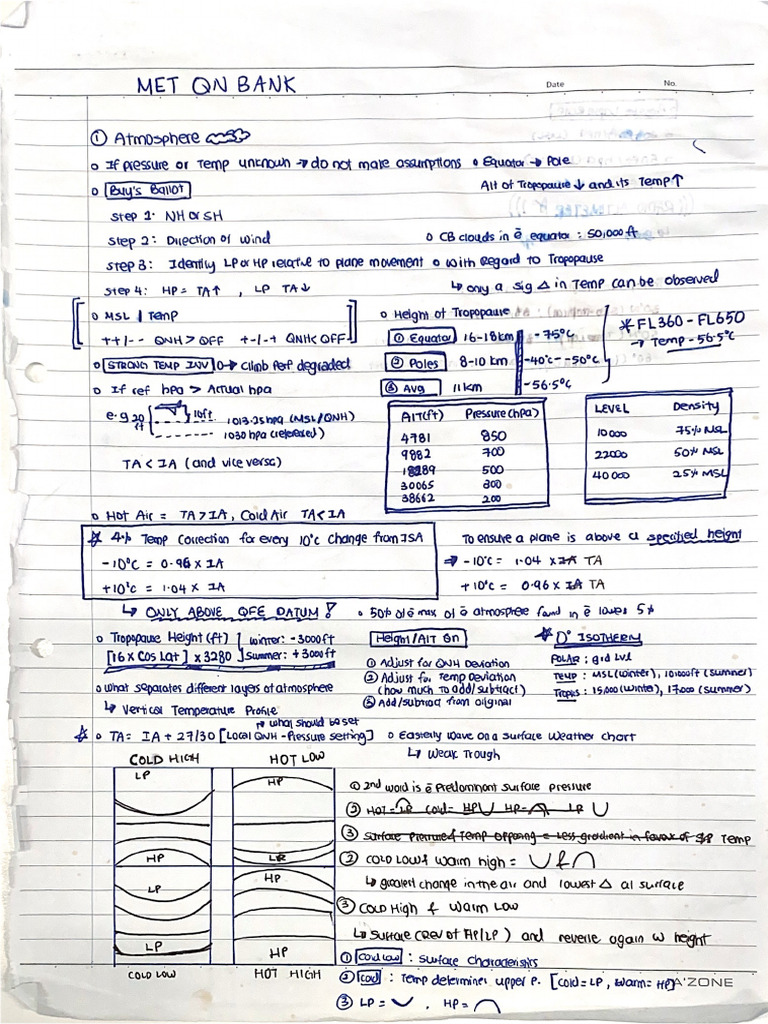 MET QN BANK
Date No.
① Atmosphere
o If pressure or Temp unknown → do not make assumptions o Equator → Pole
Alt of Tropopause ↓ and its Temp ↑
o Buy's Ballot
Step 1: NH or SH
Step 2: Direction of wind o CB clouds in ē equator : 50,000 ft
Step 3: Identify LP or HP relative to plane movement o With Regard to Tropopause
↳ only a sig Δ in Temp can be observed
Step 4: HP = TA↑ , LP TA↓
o MSL | Temp
++/-- QNH > QFF +-/-+ QNH < QFF
o Height of Tropopause
① Equator 16-18km -75°C
② Poles 8-10 km -40°C - -50°C
③ Avg 11km -56.5°C
* FL360 - FL650
→ Temp -56.5°C
o STRONG TEMP INV → Climb Perf degraded
o If ref hpa > Actual hpa
e.g 20 ft 10ft 1013.25hpa (MSL/QNH)
1030 hpa (referenced)
TA < IA (and vice versa)
Alt(ft) Pressure(hpa)
4781 850
9882 700
18289 500
30065 300
38662 200
LEVEL Density
10000 75% MSL
22000 50% MSL
40000 25% MSL
o Hot Air = TA > IA, Cold Air TA < IA
* 4% Temp Correction for every 10°C Change from ISA
-10°C = 0.96 x IA
+10°C = 1.04 x IA
↳ ONLY ABOVE QFE DATUM!
To ensure a plane is above a specified height
→ -10°C = 1.04 x IA TA
+10°C = 0.96 x IA TA
o 50% of ē max of ē atmosphere found in ē lower 5%
o Tropopause Height (ft) Winter: -3000ft
[16 x Cos Lat] x 3280 Summer: +3000ft
Height/Alt Qn
① Adjust for QNH Deviation
② Adjust for Temp Deviation
(how much to add/subtract)
③ Add/subtract from original
* 0° ISOTHERM
POLAR : grd lvl
TEMP : MSL(winter), 10000ft (summer)
Tropics : 15,000 (winter), 17000 (summer)
o What separates different layers of atmosphere
↳ Vertical Temperature Profile
↱ what should be set
* o TA = IA + 27/30 [Local QNH - Pressure setting] o Easterly wave on a surface weather chart
↳ Weak Trough
COLD HIGH HOT LOW
LP HP
HP LP
LP HP
LP HP
COLD LOW HOT HIGH
① 2nd word is ē Predominant surface pressure
② HOT = LP Cold = HP HP = LP
③ Surface Pressure & Temp opposing = Less gradient in favour of Temp
② COLD LOW & Warm high = ∪ & ∩
↳ greatest change in the air and lowest Δ at surface
③ COLD High & Warm LOW
↳ Surface (Rev of HP/LP) and reverse again w height
① Cold Low : Surface Characteristics
② Cold : Temp determines upper P. [Cold = LP, Warm = HP]
A'ZONE
③ LP = ∪ , HP = ∩